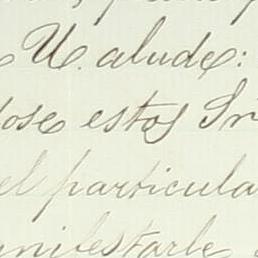 U. alude:
dose estos Sr
el particula
anifestarle